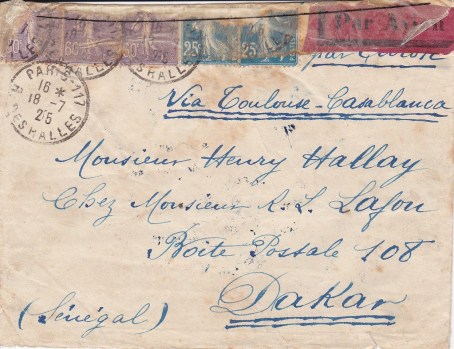 60
25
25
Par Avion
par avion
PARIS-117
16 *
18 -7
25
R. DES HALLES
Via Toulouse-Casablanca
Monsieur Henry Hallay
Chez Monsieur A. L. Lafon
Boîte Postale 108
Dakar
(Sénégal)